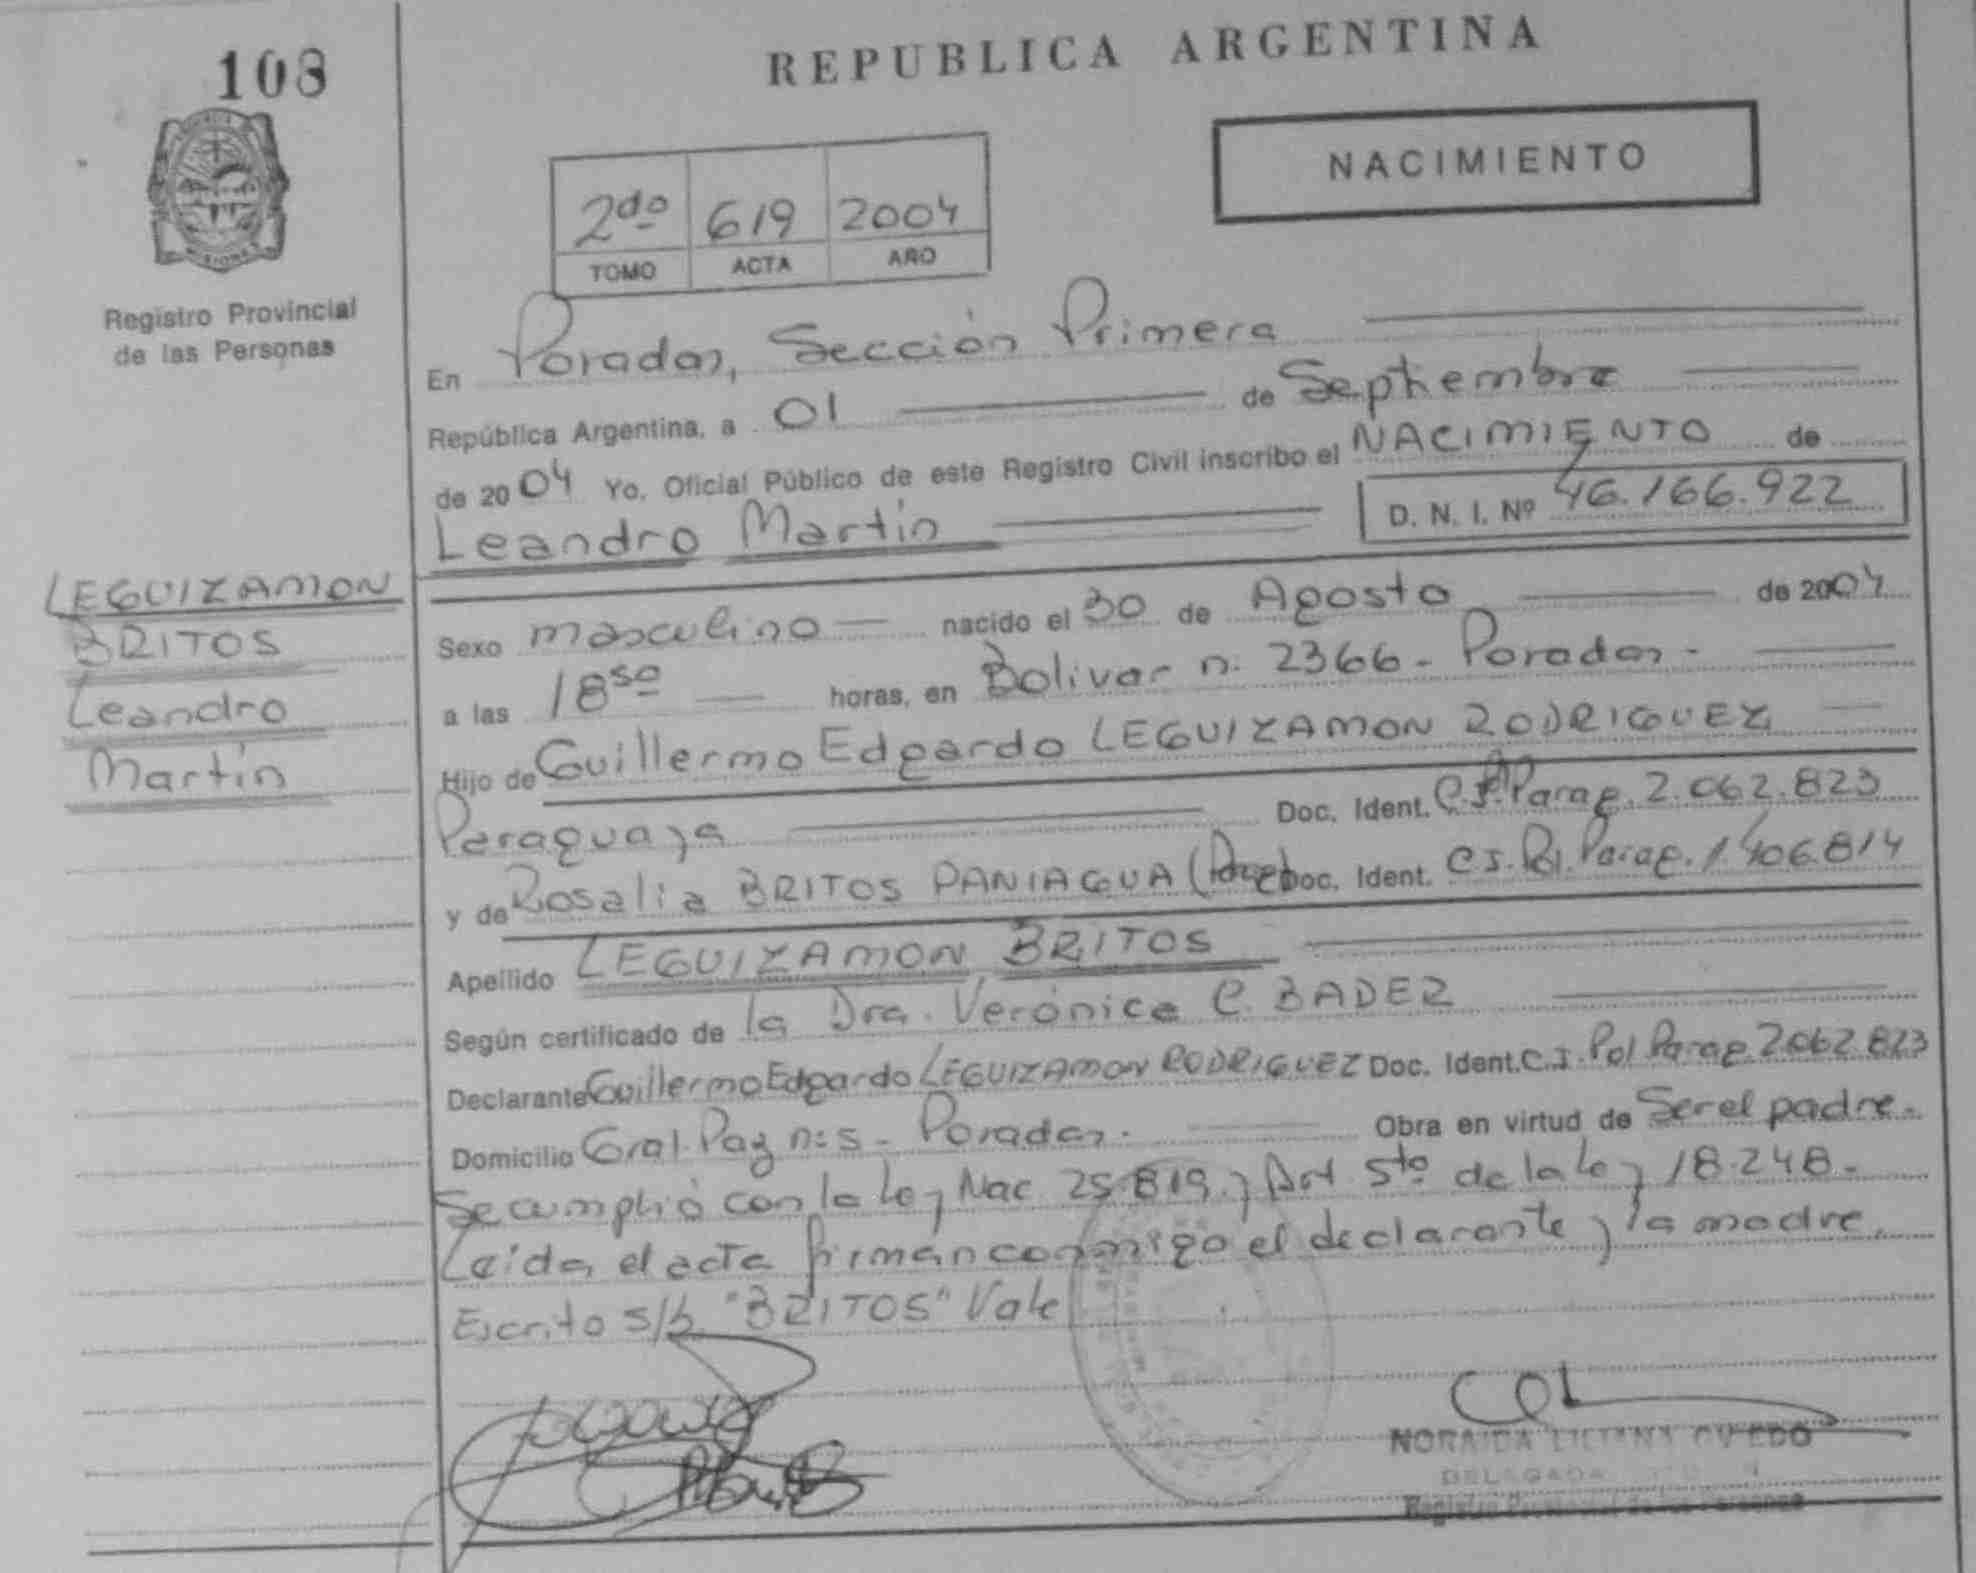 108
REPUBLICA ARGENTINA
NACIMIENTO
2do 619 2004
TOMO ACTA AÑO
Registro Provincial
de las Personas
En Posadas, Sección Primera
República Argentina, a 01 de Septiembre
de 2004 Yo, Oficial Público de este Registro Civil inscribo el NACIMIENTO de
Leandro Martín D. N. I. Nº 46.166.922
LEGUIZAMON
BRITOS
Leandro
Martín
Sexo masculino nacido el 30 de Agosto de 2004
a las 18 50 horas, en Bolivar n: 2366 - Posadas -
Hijo de Guillermo Edgardo LEGUIZAMON RODRIGUEZ
Paraguaya Doc. Ident. C.I. Parag. 2.062.823
y de Rosalia BRITOS PANIAGUA Doc. Ident. C.I. Pol. Parag. 1.406.814
Apellido LEGUIZAMON BRITOS
Según certificado de la Dra. Verónica C. BADER
Declarante Guillermo Edgardo LEGUIZAMON RODRIGUEZ Doc. Ident. C.I. Pol Parag 2.062.823
Domicilio Gral. Paz n: 5 - Posadas. Obra en virtud de Ser el padre.
Se cumplió con la ley Nac. 25.819 y Art 5to de la ley 18.248.
Leída el acta firman conmigo el declarante y la madre.
Escrito s/b "BRITOS" Vale
NORAIDA LILIANA OVIEDO
DELEGADA
Registro Provincial de las Personas